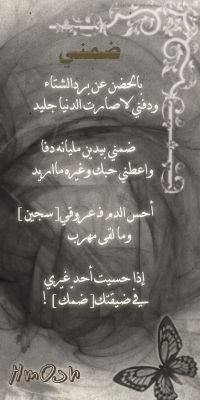 ضمني
بالحضن عن برد الشتاء
ودفني لا صارت الدنيا جليد
ضمني بيدين مليانه دفا
واعطني حبك وغيره ما اريد
أحس الدم فـ عروقي [ سجين ]
وما لقى مهرب
إذا حسيت أحدٍ غيري
في ضيقتك [ ضمك ] !